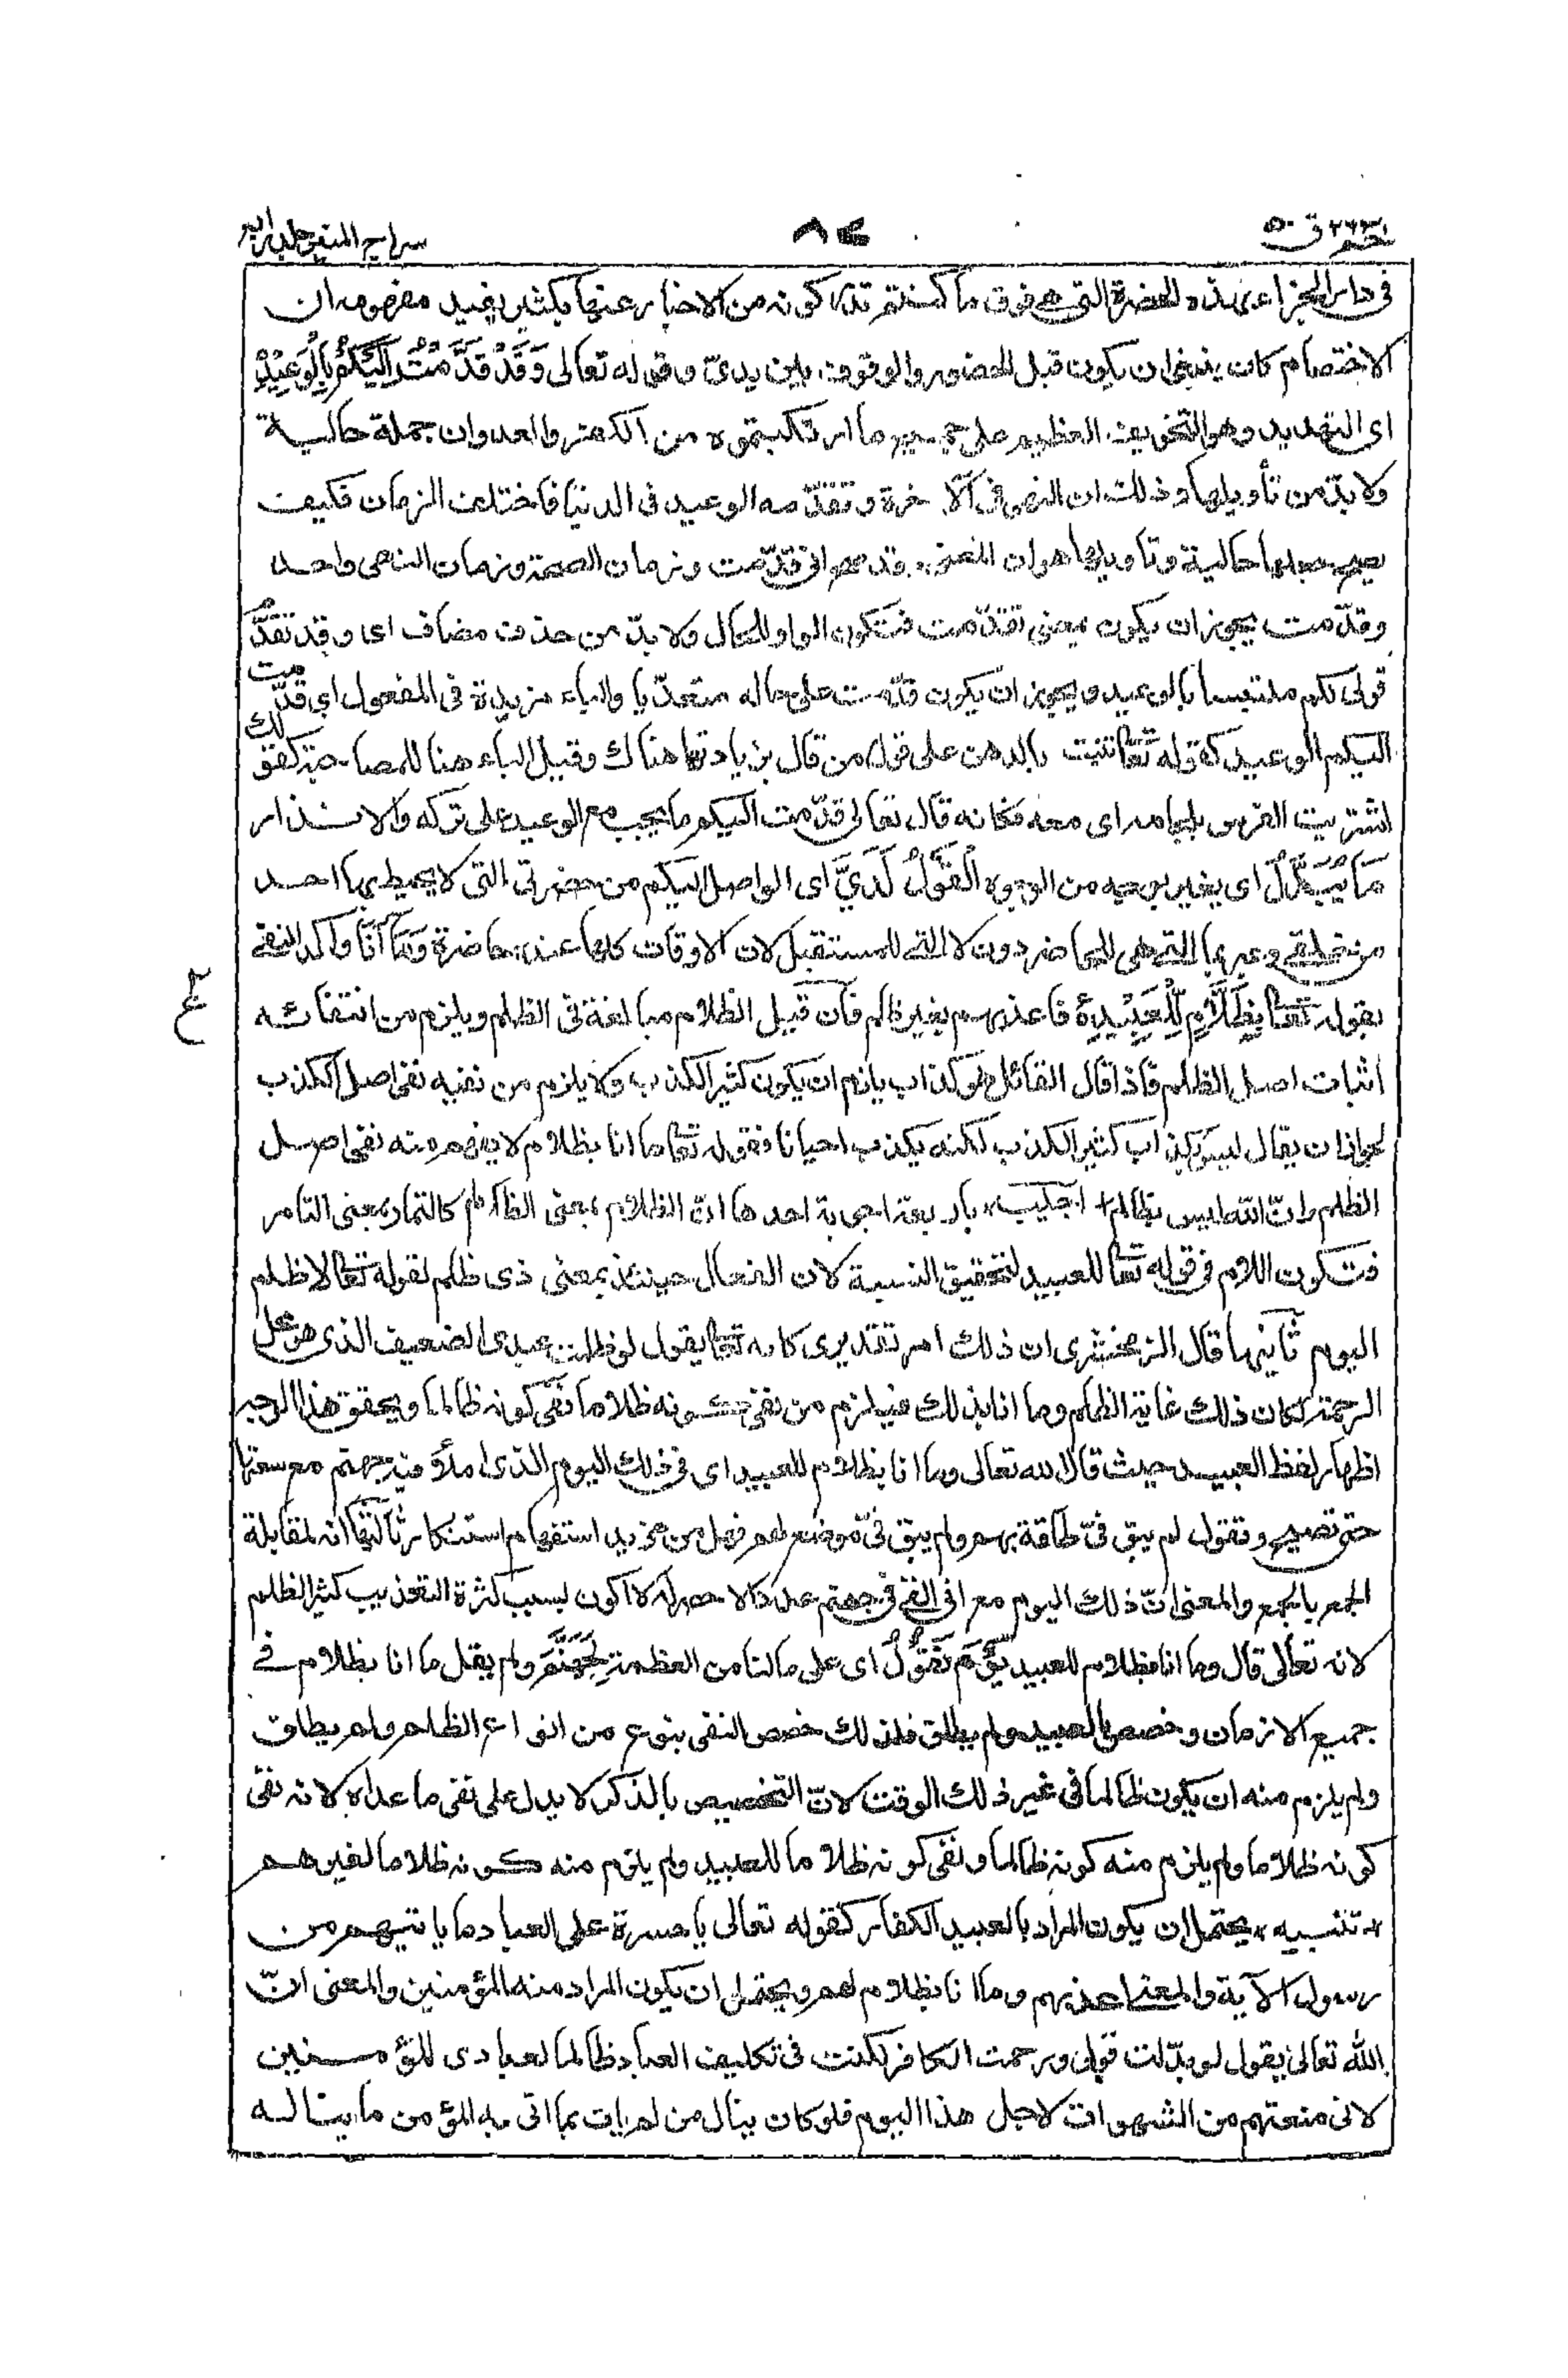 حم ٢٦ ق ٥٠
٨٤
سراج المنير جلد رابع
فى دار الجزاء بهذه الحضرة التى هى فوق ما كنتم تدركونه من الاخبار عنها بكثير يفيد مفهومه ان
الاختصام كان ينبغى ان يكون قبل الحضور والوقوف بين يدىّ وقوله تعالى وَقَدْ قَدَّمْتُ اِلَيْكُمْ بِالْوَعِيْدِ
اى التهديد وهو التخويف العظيم على جميع ما ارتكبتموه من الكفر والعدوان جملة حالية
ولا بدّ من تأويلها وذلك ان النهى فى الآخرة وتقدّمه الوعيد فى الدنيا فاختلف الزمان فكيف
يصح جعلها حالية وتاويلها هو ان المعنى وقد صح انى قدّمت وزمان الصحة وزمان النهى واحد
وقدّمت يجوز ان يكون بمعنى تقدّمت فتكون الواو للحال ولا بدّ من حذف مضاف اى وقد تقدّمت
قولى لكم ملتبسا بالوعيد ويجوز ان يكون قدّمت على حاله متعدّيا والباء مزيدة فى المفعول اى قدّمت
اليكم الوعيد كقوله تعالى تنبت بالدهن على قول من قال بزيادتها هناك وقيل الباء هنا للمصاحبة كقولك
اشتريت الفرس بلجامه اى معه فكانه قال تعالى قدّمت اليكم ما يجب مع الوعيد على تركه والانذار
مَا يُبَدَّلُ اى يغير بوجه من الوجوه الْقَوْلُ لَدَيَّ اى الواصل اليكم من حضرتى التى لا يحيط بها احد
من خلقى وعبر بما التى هى للحاضر دون لا التى للمستقبل لان الاوقات كلها عنده حاضرة وَمَآ اَنَا واكد النفى
بقوله تعالى بِظَلَّامٍ لِّلْعَبِيْدِ فاعذبهم بغير ظلم فان قيل الظلام مبالغة فى الظلم ويلزم من انتفائه
اثبات اصل الظلم فاذا قال القائل هو كذاب يلزم ان يكون كثير الكذب ولا يلزم من نفيه نفى اصل الكذب
لجواز ان يقال ليس بكذاب كثير الكذب لكنه يكذب احيانا فقوله تعالى ما انا بظلام لا يفهم منه نفى اصل
الظلم وانّ الله ليس بظالم اجيب باربعة اجوبة احدها انّ الظلام بمعنى الظالم كالتمار بمعنى التامر
فتكون اللام فى قوله تعالى للعبيد لتحقيق النسبة لان الفعال حينئذ بمعنى ذى ظلم لقوله تعالى لا ظلم
اليوم ثانيها قال الزمخشرى ان ذلك امر تقديرى كانه تعالى يقول لو ظلمت عبدى الضعيف الذى هو محل
الرحمة لكان ذلك غاية الظلم وما انا بذلك فيلزم من نفى كونه ظلاما نفى كونه ظالما ويحقق هذا الوجه
اظهار لفظ العبيد حيث قال الله تعالى وما انا بظلام للعبيد اى فى ذلك اليوم الذى املأ فيه جهنم مع سعتها
حتى تصيح وتقول لم يبق فىّ طاقة بهم ولم يبق فىّ موضع لهم فهل من مزيد استفهام استنكار ثالثها انه لمقابلة
الجمع بالجمع والمعنى انّ ذلك اليوم مع انى القى فى جهنم عددا لا حصر له لا اكون بسبب كثرة التعذيب كثير الظلم
لانه تعالى قال وما انا بظلام للعبيد يَوْمَ نَقُوْلُ اى على ما لنا من العظمة لِجَهَنَّمَ ولم يقل ما انا بظلام فى
جميع الازمان وخصص بالعبيد ولم يطلق فلذلك خصص النفى بنوع من انواع الظلم ولم يطلق
ولم يلزم منه ان يكون ظالما فى غير ذلك الوقت لانّ التخصيص بالذكر لا يدل على نفى ما عداه لانه نفى
كونه ظلاما ولم يلزم منه كونه ظالما ونفى كونه ظلاما للعبيد ولم يلزم منه كونه ظلاما لغيرهم
تنبيه يحتمل ان يكون المراد بالعبيد الكفار كقوله تعالى يا حسرة على العباد ما ياتيهم من
رسول الآية والمعنى اعذبهم وما انا بظلام لهم ويحتمل ان يكون المراد منه المؤمنين والمعنى انّ
الله تعالى يقول لو بدّلت قولى ورحمت الكافر لكنت فى تكليف العباد ظالما لعبادى المؤمنين
لانى منعتهم من الشهوات لاجل هذا اليوم فلو كان ينال من لم يات بما اتى به المؤمن ما يناله
ع